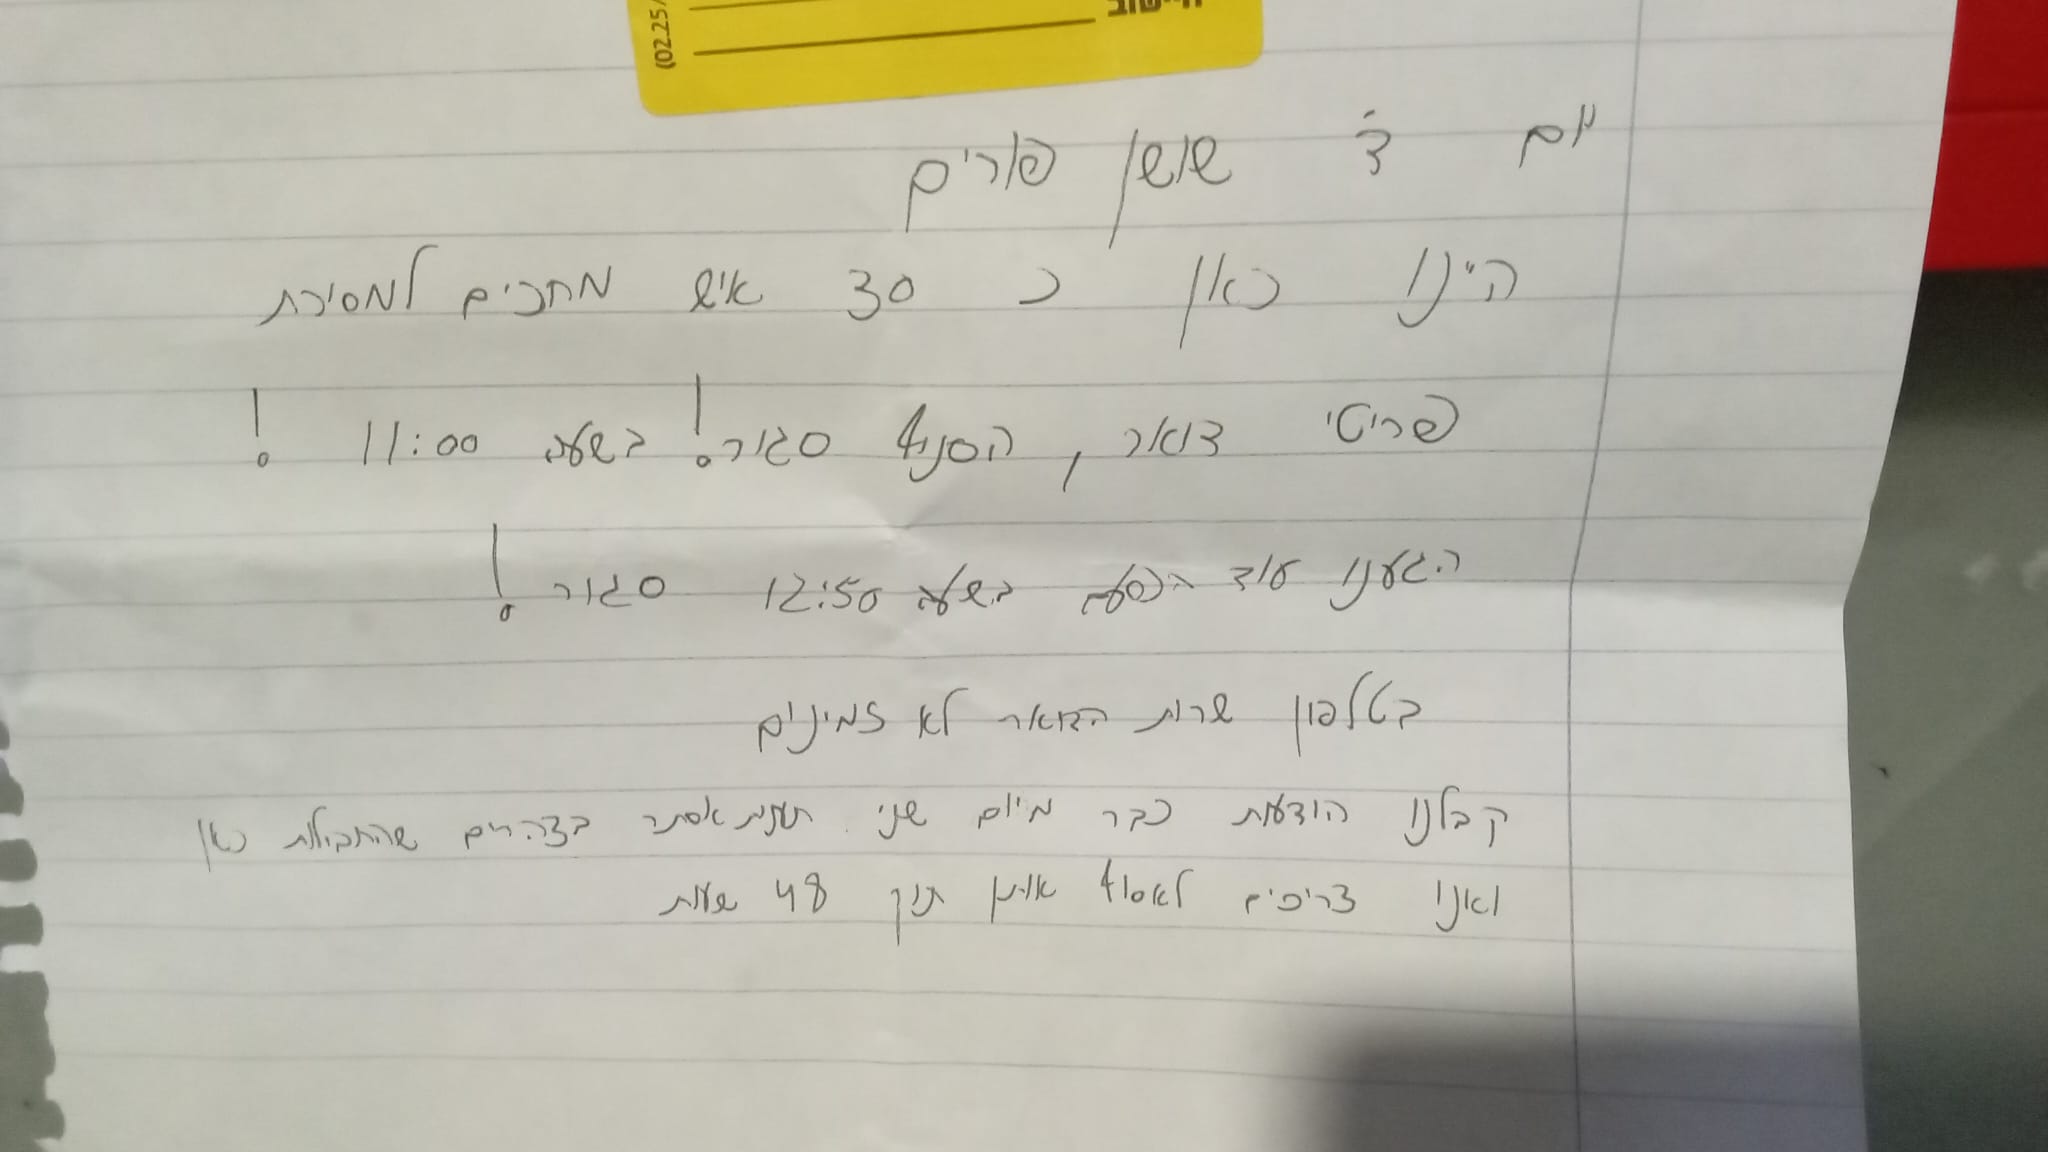 (02.25
יום ד' שושן פורים
היינו כאן כ 30 איש מחכים למסירת
פריטי דואר, הסניף סגור! בשעה 11:00 !
הגענו עוד הפעם בשעה 12:50 סגור !
בטלפון שרות הדואר לא זמינים
קבלנו הודעות כבר מיום שני תענית אסתר בצהריים שהחבילות כאן
ואנו צריכים לאסוף אותן תוך 48 שעות